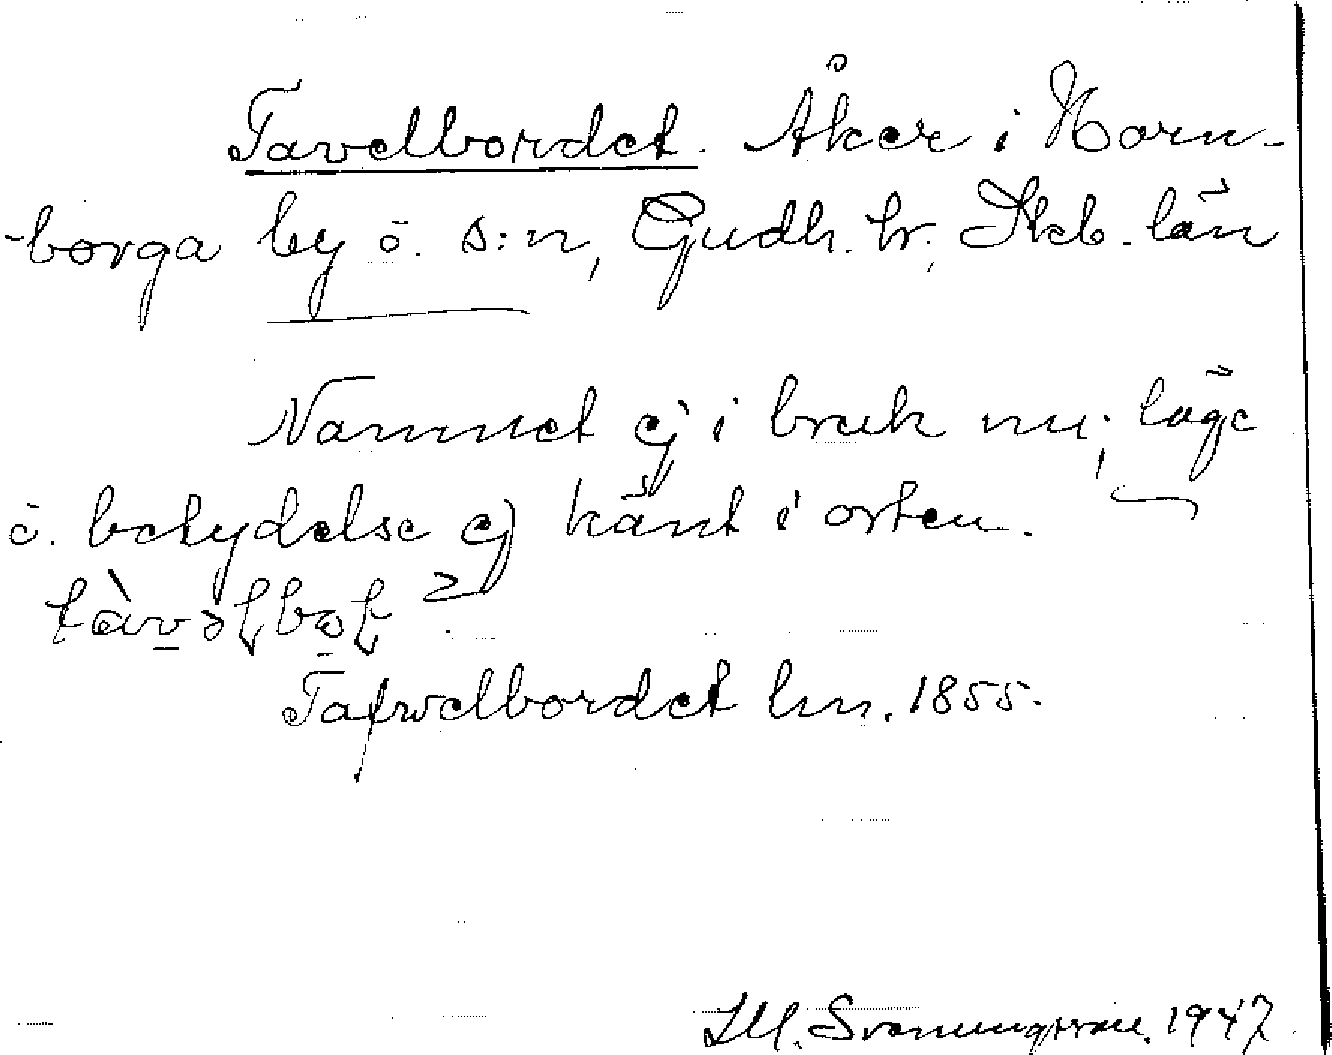 Tavelbordet. Åker i Horn-
-borga by ö. s:n, Gudh. hr; Skb. län
Namnet ej i bruk nu; läge
ö. betydelse ej känt i orten.
Tafwelbordet lm. 1855.
1947